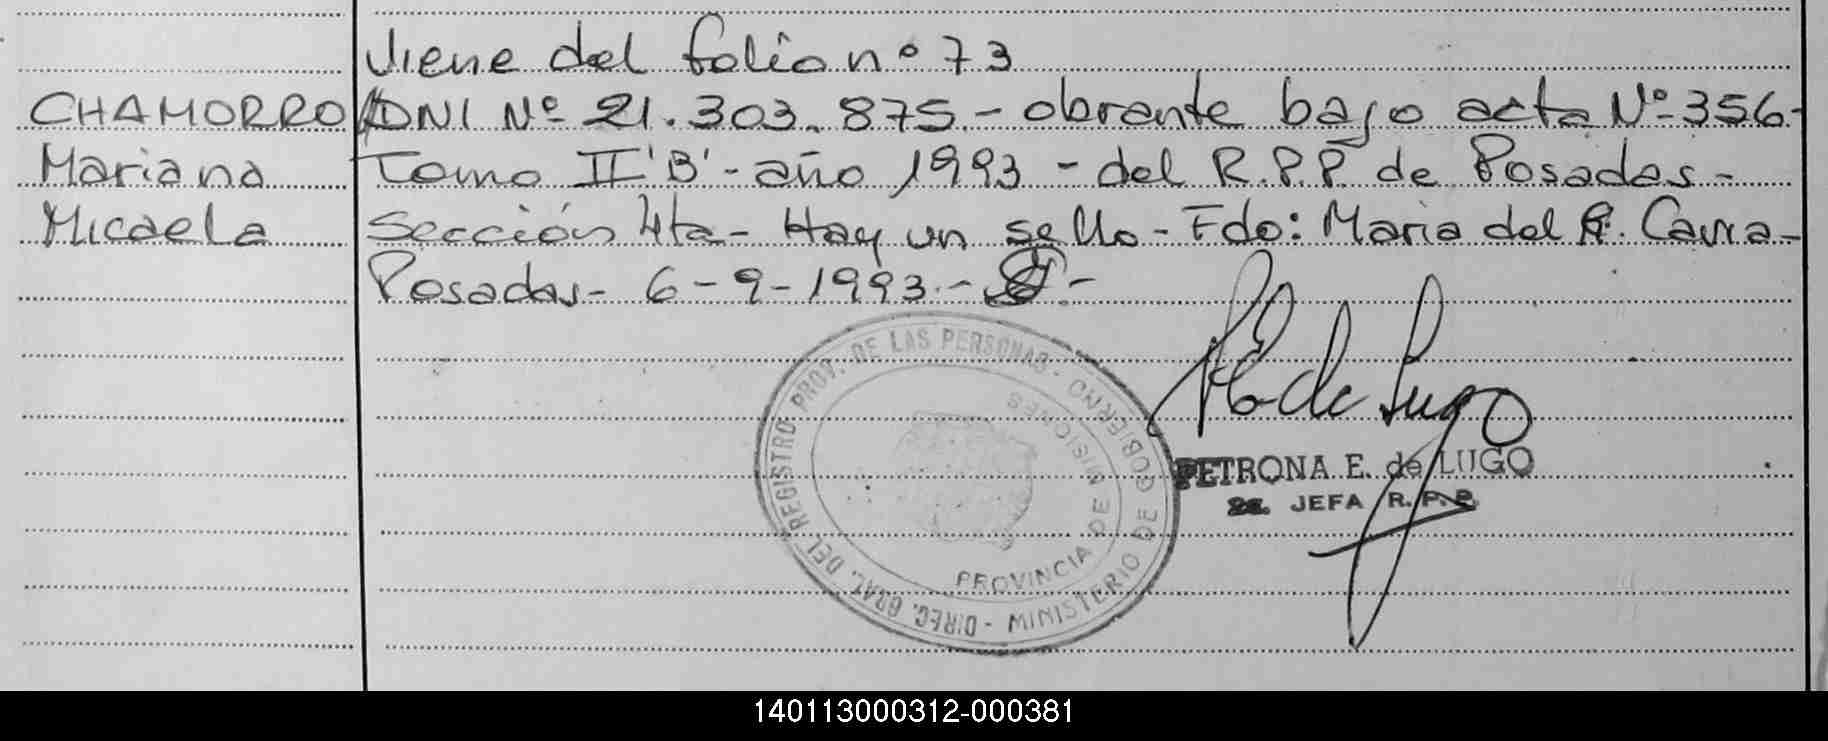 Viene del folio nº 73
CHAMORRO DNI Nº 21.303.875.- obrante bajo acta Nº 356-
Mariana Tomo II 'B' - año 1993 - del R.P.P. de Posadas -
Micaela Sección 4ta - Hay un sello - Fdo: Maria del R. Cavia -
Posadas - 6-9-1993.-
DIREC. GRAL. DEL REGISTRO PROV. DE LAS PERSONAS - MINISTERIO DE GOBIERNO
PROVINCIA DE MISIONES
PETRONA E. de LUGO
JEFA R.P.P.
140113000312-000381